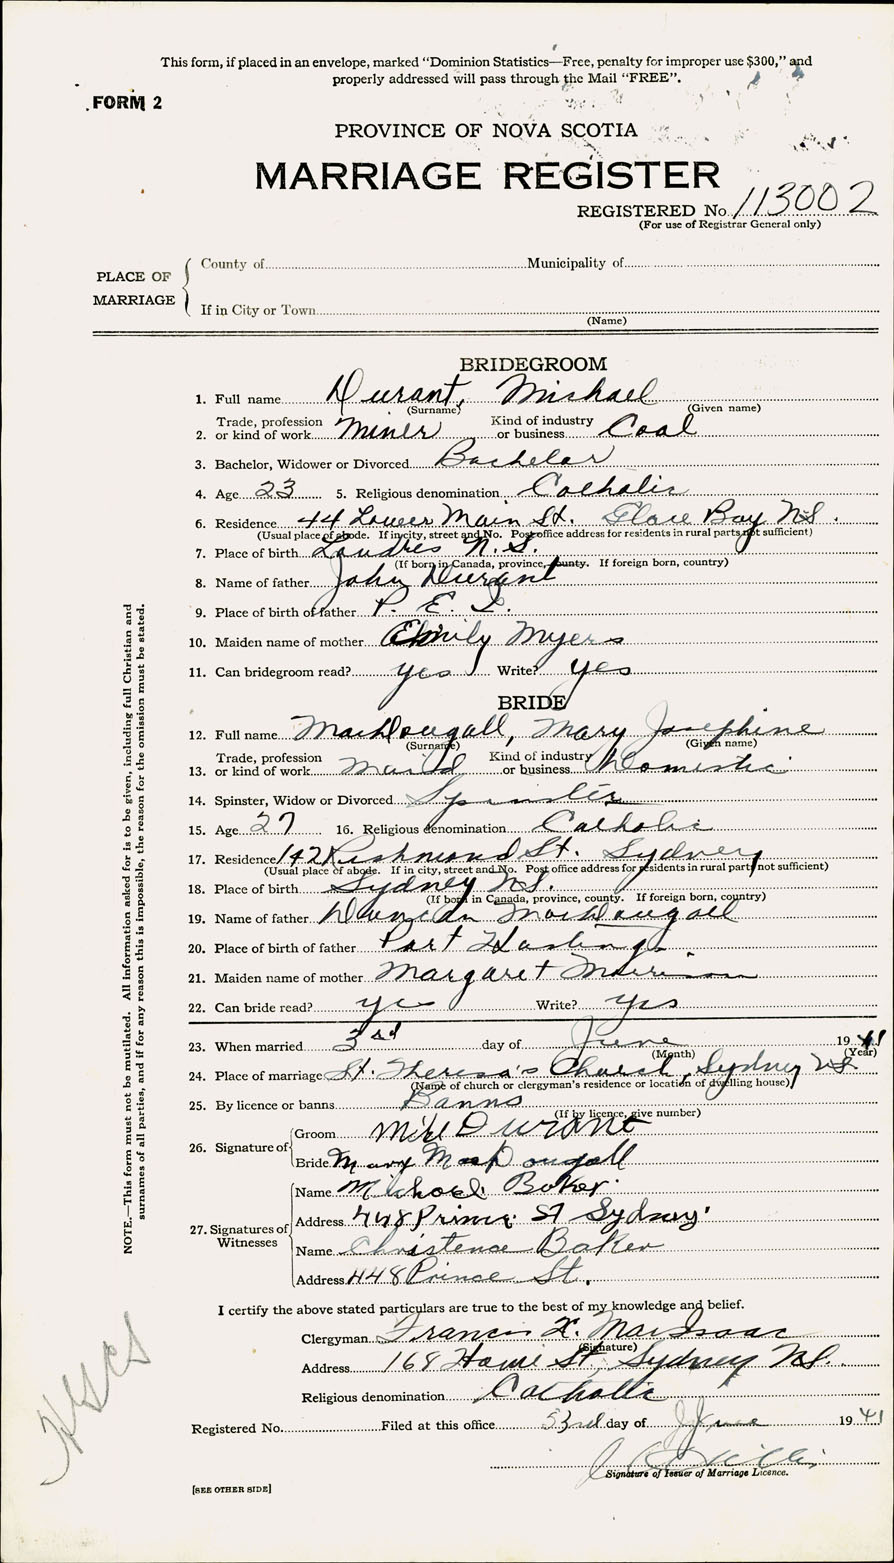 This form, if placed in an envelope, marked "Dominion Statistics—Free, penalty for improper use $300," and
properly addressed will pass through the Mail "FREE".
FORM 2
PROVINCE OF NOVA SCOTIA
MARRIAGE REGISTER
REGISTERED No. 113002
(For use of Registrar General only)
PLACE OF MARRIAGE
County of Municipality of
If in City or Town
(Name)
BRIDEGROOM
1. Full name Durant, Michael
(Surname) (Given name)
2. Trade, profession or kind of work Miner Kind of industry or business Coal
3. Bachelor, Widower or Divorced Bachelor
4. Age 23 5. Religious denomination Catholic
6. Residence 44 Lower Main St. Glace Bay N.S.
(Usual place of abode. If in city, street and No. Post office address for residents in rural parts not sufficient)
7. Place of birth Loudres N.S.
(If born in Canada, province, county. If foreign born, country)
8. Name of father John Durant
9. Place of birth of father P. E. I.
10. Maiden name of mother Emily Myers
11. Can bridegroom read? yes Write? yes
BRIDE
12. Full name MacDougall, Mary Josephine
(Surname) (Given name)
13. Trade, profession or kind of work Maid Kind of industry or business Domestic
14. Spinster, Widow or Divorced Spinster
15. Age 27 16. Religious denomination Catholic
17. Residence 142 Richmond St. Sydney
(Usual place of abode. If in city, street and No. Post office address for residents in rural parts not sufficient)
18. Place of birth Sydney N.S.
(If born in Canada, province, county. If foreign born, country)
19. Name of father Duncan MacDougall
20. Place of birth of father Port Hastings.
21. Maiden name of mother Margaret Morrison
22. Can bride read? yes Write? yes
23. When married 3rd day of June 1941
(Month) (Year)
24. Place of marriage St. Theresa's Church, Sydney N.S.
(Name of church or clergyman's residence or location of dwelling house)
25. By licence or banns Banns
(If by licence, give number)
26. Signature of
Groom Mike Durant
Bride Mary MacDougall
27. Signatures of Witnesses
Name Michael Baker.
Address 448 Prince St Sydney
Name Christence Baker
Address 448 Prince St.
I certify the above stated particulars are true to the best of my knowledge and belief.
Clergyman Francis X. MacIsaac
(Signature)
Address 168 St, Sydney N.S.
Religious denomination Catholic
Registered No. Filed at this office 3rd day of June 1941
Signature of Issuer of Marriage Licence.
[SEE OTHER SIDE]
NOTE.—This form must not be mutilated. All information asked for is to be given, including full Christian and
surnames of all parties, and if for any reason this is impossible, the reason for the omission must be stated.